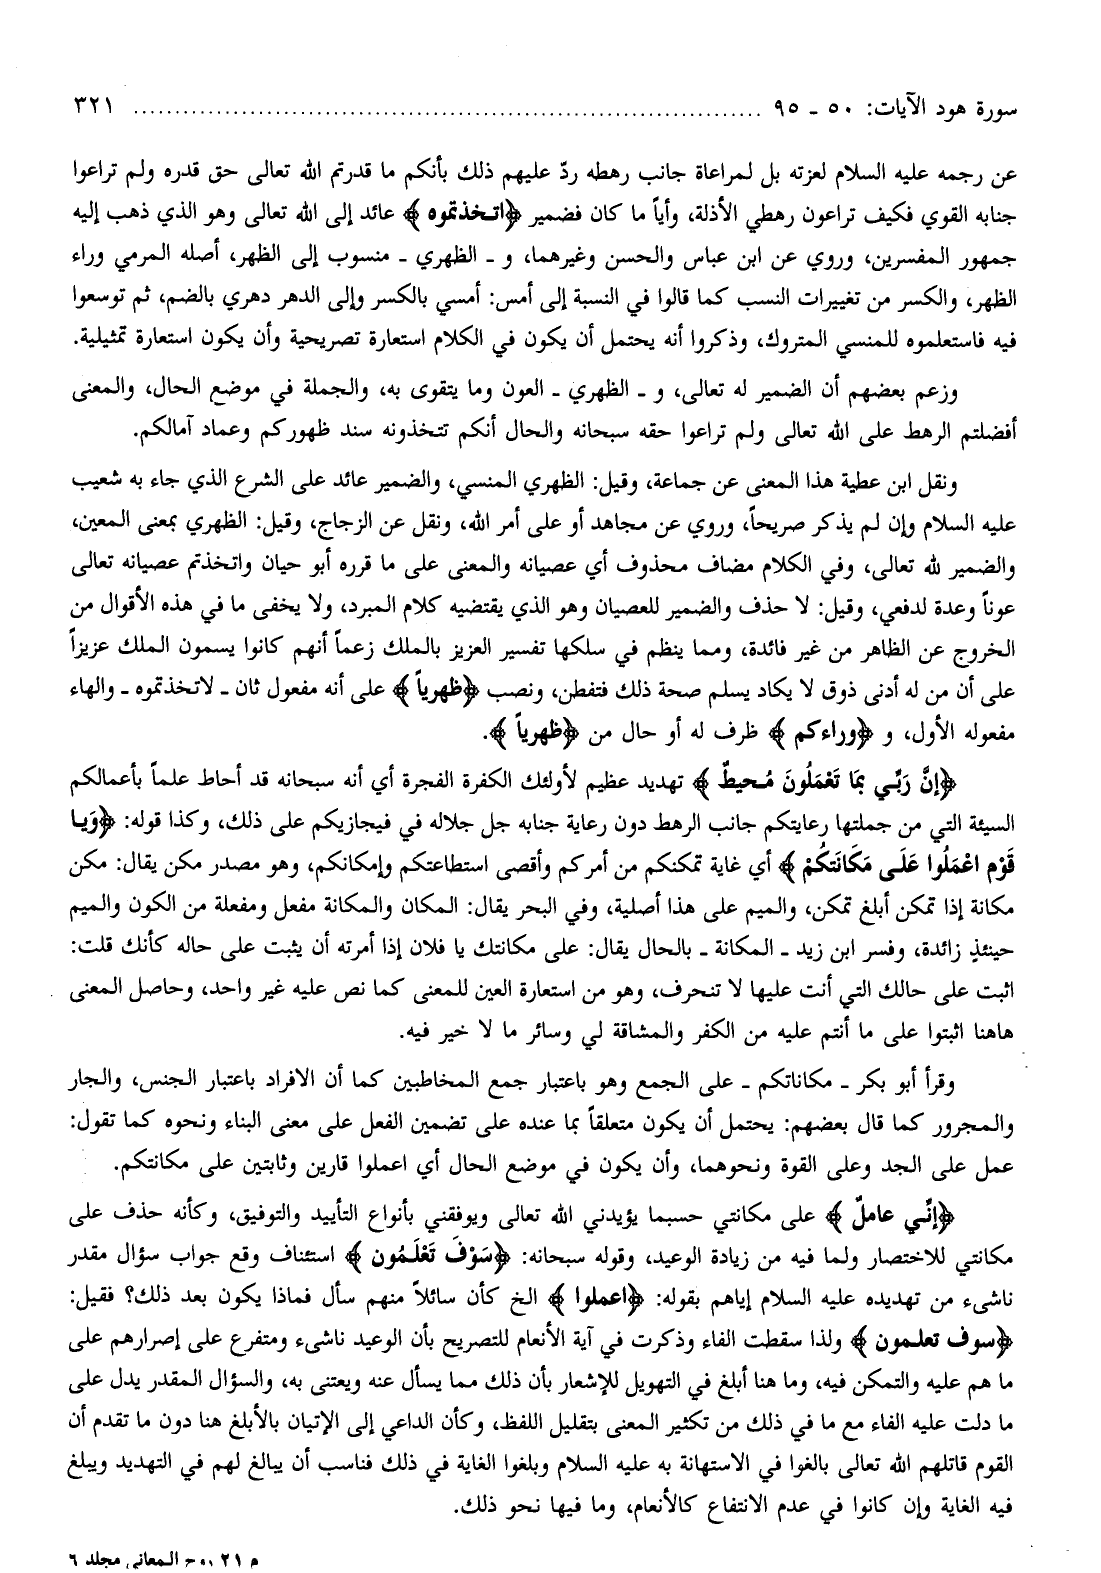 سورة هود الآيات: ٥٠ ـ ٩٥ ........................................................................ ٣٢١
عن رجمه عليه السلام لعزته بل لمراعاة جانب رهطه ردّ عليهم ذلك بأنكم ما قدرتم الله تعالى حق قدره ولم تراعوا
جنابه القوي فكيف تراعون رهطي الأذلة، وأياً ما كان فضمير ﴿اتخذتموه﴾ عائد إلى الله تعالى وهو الذي ذهب إليه
جمهور المفسرين، وروي عن ابن عباس والحسن وغيرهما، و ـ الظهري ـ منسوب إلى الظهر، أصله المرمي وراء
الظهر، والكسر من تغييرات النسب كما قالوا في النسبة إلى أمس: أمسي بالكسر وإلى الدهر دهري بالضم، ثم توسعوا
فيه فاستعلموه للمنسي المتروك، وذكروا أنه يحتمل أن يكون في الكلام استعارة تصريحية وأن يكون استعارة تمثيلية.
وزعم بعضهم أن الضمير له تعالى، و ـ الظهري ـ العون وما يتقوى به، والجملة في موضع الحال، والمعنى
أفضلتم الرهط على الله تعالى ولم تراعوا حقه سبحانه والحال أنكم تتخذونه سند ظهوركم وعماد آمالكم.
ونقل ابن عطية هذا المعنى عن جماعة، وقيل: الظهري المنسي، والضمير عائد على الشرع الذي جاء به شعيب
عليه السلام وإن لم يذكر صريحاً، وروي عن مجاهد أو على أمر الله، ونقل عن الزجاج، وقيل: الظهري بمعنى المعين،
والضمير لله تعالى، وفي الكلام مضاف محذوف أي عصيانه والمعنى على ما قرره أبو حيان واتخذتم عصيانه تعالى
عوناً وعدة لدفعي، وقيل: لا حذف والضمير للعصيان وهو الذي يقتضيه كلام المبرد، ولا يخفى ما في هذه الأقوال من
الخروج عن الظاهر من غير فائدة، ومما ينظم في سلكها تفسير العزيز بالملك زعماً أنهم كانوا يسمون الملك عزيزاً
على أن من له أدنى ذوق لا يكاد يسلم صحة ذلك فتفطن، ونصب ﴿ظهرياً﴾ على أنه مفعول ثان ـ لاتخذتموه ـ والهاء
مفعوله الأول، و ﴿وراءكم﴾ ظرف له أو حال من ﴿ظهرياً﴾.
﴿إنَّ رَبِّي بمَا تَعْمَلُونَ مُحيطٌ﴾ تهديد عظيم لأولئك الكفرة الفجرة أي أنه سبحانه قد أحاط علماً بأعمالكم
السيئة التي من جملتها رعايتكم جانب الرهط دون رعاية جنابه جل جلاله في فيجازيكم على ذلك، وكذا قوله: ﴿وَيا
قَوْم اعْمَلُوا عَلَى مَكَانَتكُمْ﴾ أي غاية تمكنكم من أمركم وأقصى استطاعتكم وإمكانكم، وهو مصدر مكن يقال: مكن
مكانة إذا تمكن أبلغ تمكن، والميم على هذا أصلية، وفي البحر يقال: المكان والمكانة مفعل ومفعلة من الكون والميم
حينئذٍ زائدة، وفسر ابن زيد ـ المكانة ـ بالحال يقال: على مكانتك يا فلان إذا أمرته أن يثبت على حاله كأنك قلت:
اثبت على حالك التي أنت عليها لا تنحرف، وهو من استعارة العين للمعنى كما نص عليه غير واحد، وحاصل المعنى
هاهنا اثبتوا على ما أنتم عليه من الكفر والمشاقة لي وسائر ما لا خير فيه.
وقرأ أبو بكر ـ مكاناتكم ـ على الجمع وهو باعتبار جمع المخاطبين كما أن الافراد باعتبار الجنس، والجار
والمجرور كما قال بعضهم: يحتمل أن يكون متعلقاً بما عنده على تضمين الفعل على معنى البناء ونحوه كما تقول:
عمل على الجد وعلى القوة ونحوهما، وأن يكون في موضع الحال أي اعملوا قارين وثابتين على مكانتكم.
﴿إنِّي عاملٌ﴾ على مكانتي حسبما يؤيدني الله تعالى ويوفقني بأنواع التأييد والتوفيق، وكأنه حذف على
مكانتي للاختصار ولما فيه من زيادة الوعيد، وقوله سبحانه: ﴿سَوْفَ تَعْلَمُون﴾ استئناف وقع جواب سؤال مقدر
ناشىء من تهديده عليه السلام إياهم بقوله: ﴿اعملوا﴾ الخ كأن سائلاً منهم سأل فماذا يكون بعد ذلك؟ فقيل:
﴿سوف تعلمون﴾ ولذا سقطت الفاء وذكرت في آية الأنعام للتصريح بأن الوعيد ناشىء ومتفرع على إصرارهم على
ما هم عليه والتمكن فيه، وما هنا أبلغ في التهويل للإشعار بأن ذلك مما يسأل عنه ويعتنى به، والسؤال المقدر يدل على
ما دلت عليه الفاء مع ما في ذلك من تكثير المعنى بتقليل اللفظ، وكأن الداعي إلى الإتيان بالأبلغ هنا دون ما تقدم أن
القوم قاتلهم الله تعالى بالغوا في الاستهانة به عليه السلام وبلغوا الغاية في ذلك فناسب أن يبالغ لهم في التهديد ويبلغ
فيه الغاية وإن كانوا في عدم الانتفاع كالأنعام، وما فيها نحو ذلك.
م ٢١ روح المعاني مجلد ٦